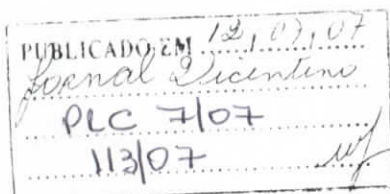 PUBLICADO EM 12,07,07
Jornal Vicentino
PLC 7/07
113/07